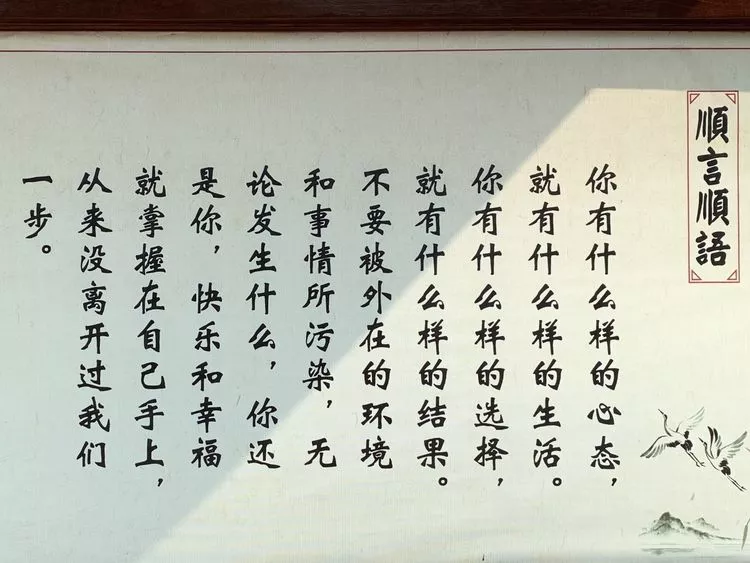 順言順語
你有什么样的心态，
就有什么样的生活。
你有什么样的选择，
就有什么样的结果。
不要被外在的环境
和事情所污染，无
论发生什么，你还
是你，快乐和幸福
就掌握在自己手上，
从来没离开过我们
一步。